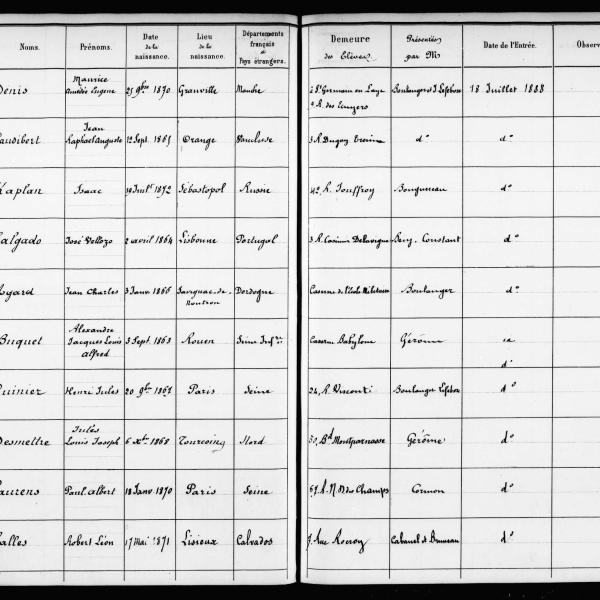 Noms. Prénoms. Date de la naissance. Lieu de la naissance. Départements français & Pays étrangers. Demeure des Elèves Présentés par MM Date de l'Entrée. Observ
Denis Maurice Amédée Eugène 25 9bre 1870 Granville Manche à St Germain en Laye R. des Ecuyers Boulanger et J Lefebvre 18 Juillet 1888
audibert Jean Raphaël Auguste Sept. 1865 Orange Vaucluse 3 R. Duguay Trouin do do
Kaplan Isaac 1872 Sébastopol Russie 42, R. Jouffroy Bouguereau do
algado José Vellozo 2 avril 1864 Lisbonne Portugal 3 R. Casimir Delavigne Benj. Constant do
Ayard Jean Charles 3 Janv. 1866 Savignac-de-Nontron Dordogne Caserne de l'école Militaire Boulanger do
Buquet Alexandre Jacques Louis Alfred 3 Sept. 1863 Rouen Seine Infre Caserne Babylone Gérôme do
uinier Henri Jules 20 9bre 1867 Paris Seine 24, R. Visconti Boulanger Lefebvre do
Desmettre Jules Louis Joseph 6 Xbre 1868 Tourcoing Nord 50, Bd Montparnasse Gérôme do
aurens Paul Albert 18 Janv. 1870 Paris Seine 67, R. N. D. des Champs Cormon do
alles Robert Léon 17 Mai 1871 Lisieux Calvados 7, Rue Rocroy Cabanel et do